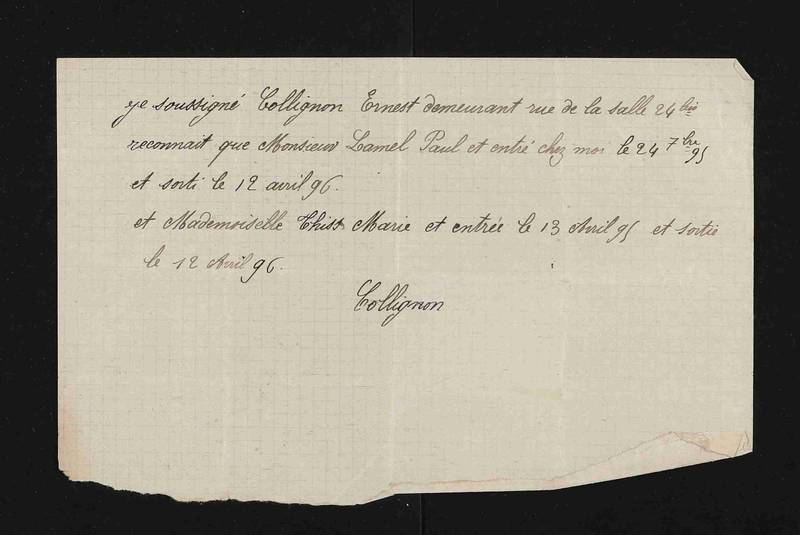 je soussigné Collignon Ernest demeurant rue de la salle 24 bis
reconnait que Monsieur Lamel Paul et entré chez moi le 24 7bre 95
et sorti le 12 avril 96.
et Mademoiselle Thiss Marie et entrée le 13 Avril 95 et sortie
le 12 Avril 96.
Collignon